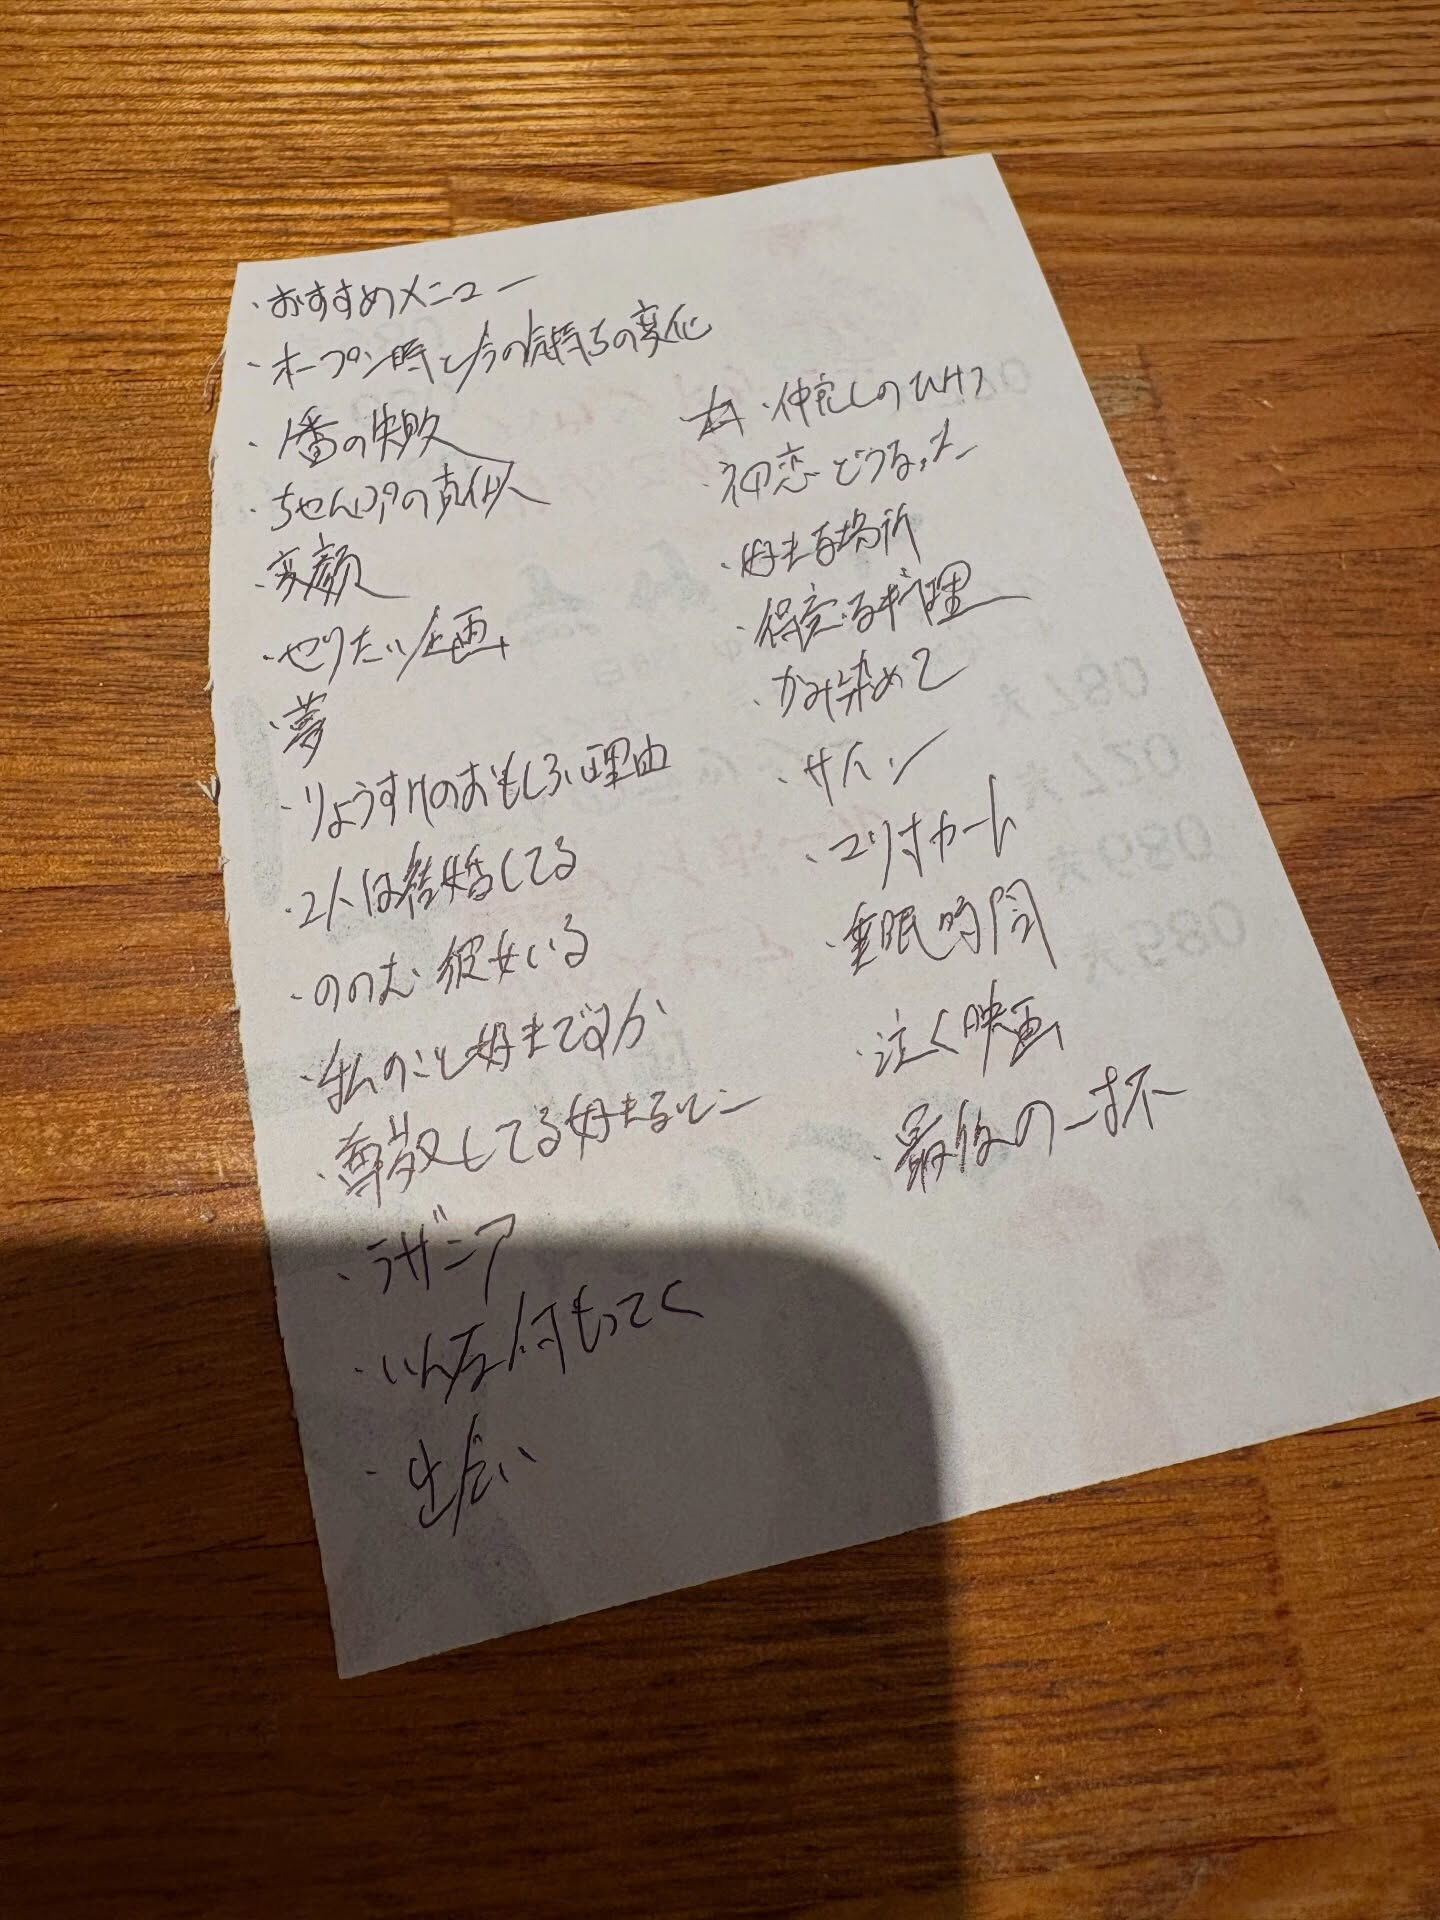 ・おすすめメニュー
・オープン時と今の気持ちの変化
・1番の失敗
・ちゃんぴの真似
・変顔
・やりたい企画
・夢
・りょうすけのおもしろい理由
・2人は結婚してる
・ののむ 彼女いる
・私のこと好きですか
・尊敬してる好きなとこ
・ラザニア
・いんな何もってく
・出会い
・仲良しのひけつ
・初恋どうなった
・好きな場所
・得意な料理
・かみ染めて
・サイン
・マリオカート
・睡眠時間
・泣く映画
・最後の一杯